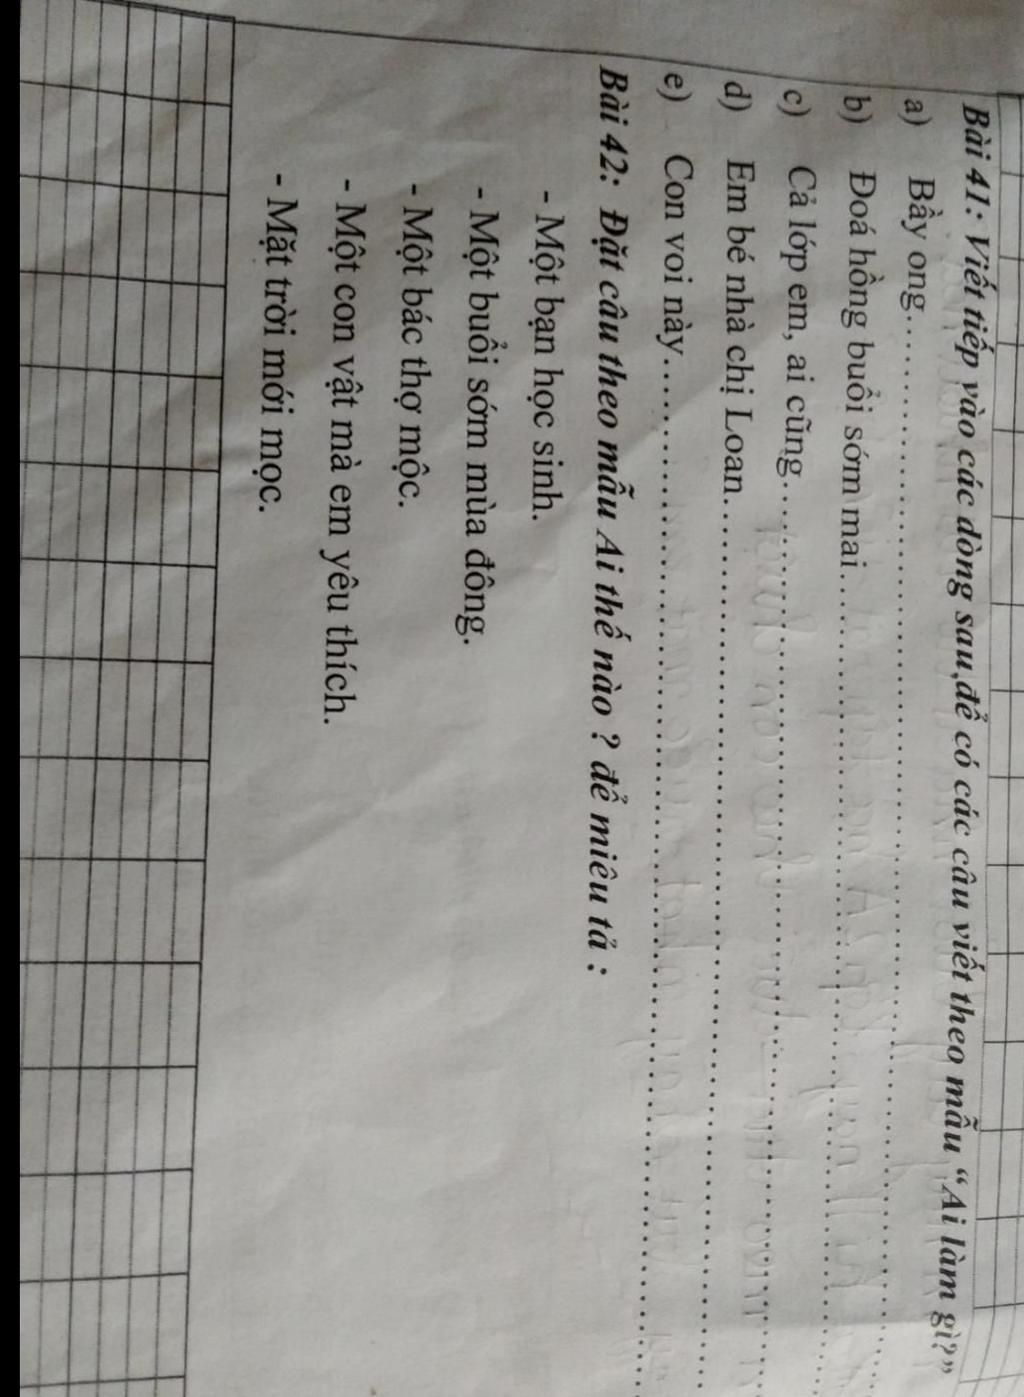 Bài 41: Viết tiếp vào các dòng sau,để có các câu viết theo mẫu “Ai làm gì?”
a) Bầy ong..........................................................
b) Đoá hồng buổi sớm mai..........................................................
c) Cả lớp em, ai cũng..........................................................
d) Em bé nhà chị Loan..........................................................
e) Con voi này..........................................................
Bài 42: Đặt câu theo mẫu Ai thế nào ? để miêu tả :
- Một bạn học sinh.
- Một buổi sớm mùa đông.
- Một bác thợ mộc.
- Một con vật mà em yêu thích.
- Mặt trời mới mọc.